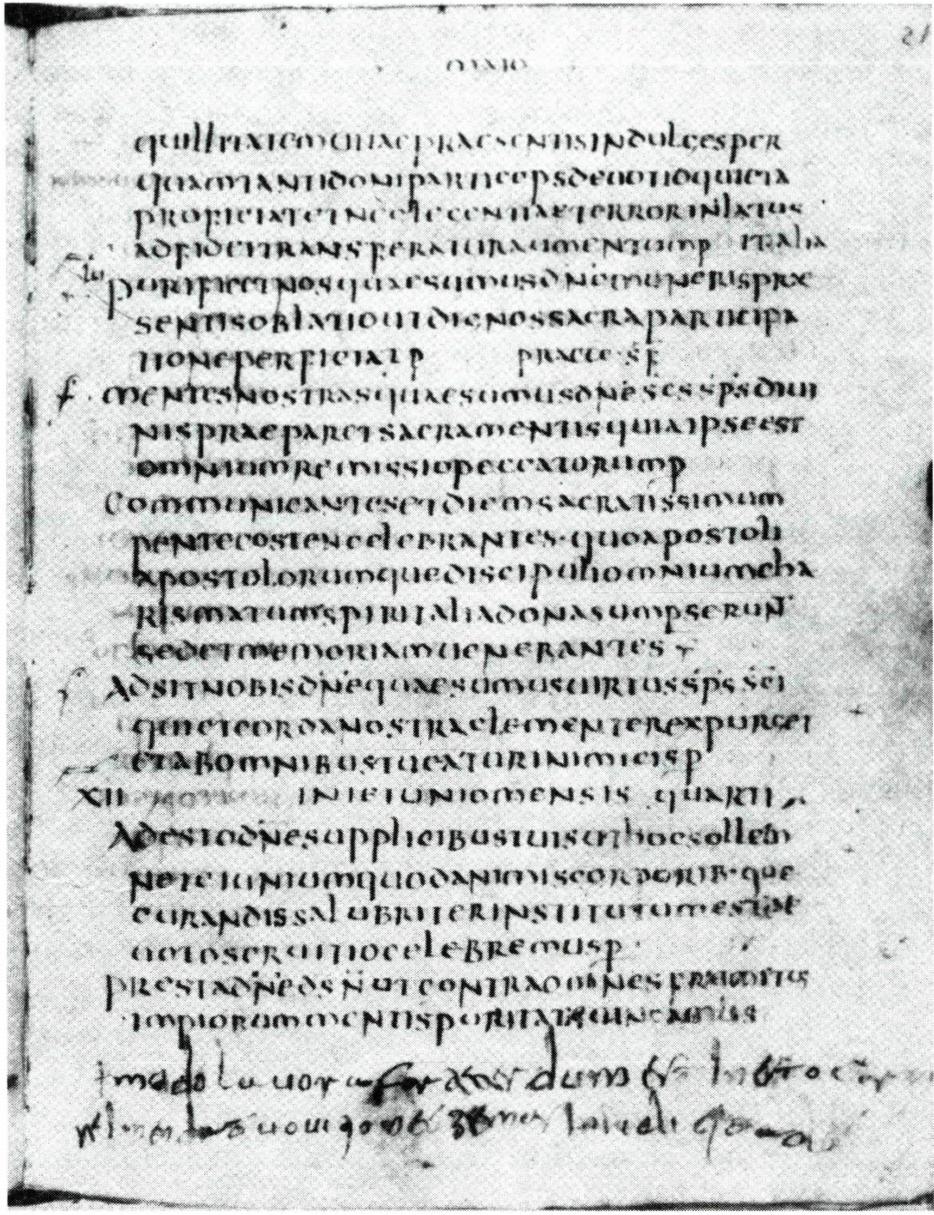 MAIO
21
quillitatem uitae praesentis indulges per
quam tanti doni particeps deuotio quieta
proficiat et terror inlatus
ad fidei transferatur augmentum p it alia
purificet nos quaesumus dn̄e muneris prae
sentis oblatio ut dignos sacra participa
tione perficiat p praece sf
mentes nostras quaesumus dn̄e sc̄s sp̄s diui
nis praeparet sacramentis quia ipse est
omnium remissio peccatorum p
communicantes et diem sacratissimum
pentecosten celebrantes· quo apostoli
apostolorumque discipuli omnium cha
rismatum spiritalia dona sumpserunt
sed et memoriam uenerantes
Adsit nobis dn̄e quaesumus uirtus sp̄s sc̄i
que et corda nostra clementer expurget
et ab omnibus tueatur inimicis p
XII IN IEIUNIO MENSIS QUARTI
Adesto dn̄e supplicibus tuis ut hoc sollem
ne ieiunium quod animis corporib·que
curandis salubriter institutum est de
uoto seruitio celebremus p
presta dn̄e ds̄ n̄ ut contra omnes fremitus
impiorum mentis puritate uincamus